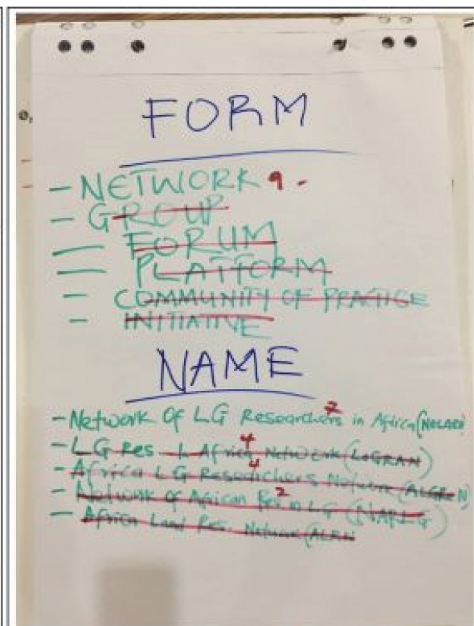 FORM
- NETWORK 9.
- GROUP
- FORUM
- PLATFORM
- COMMUNITY OF PRACTICE
- INITIATIVE
NAME
- Network Of LG Researchers 7 in Africa (NELGRA
- LG Res. Africa 4 Network (LoGRAN)
- Africa LG Researchers 4 Network
- Network of African Res 2 in LG
- Africa Land Res. Network (ALRN